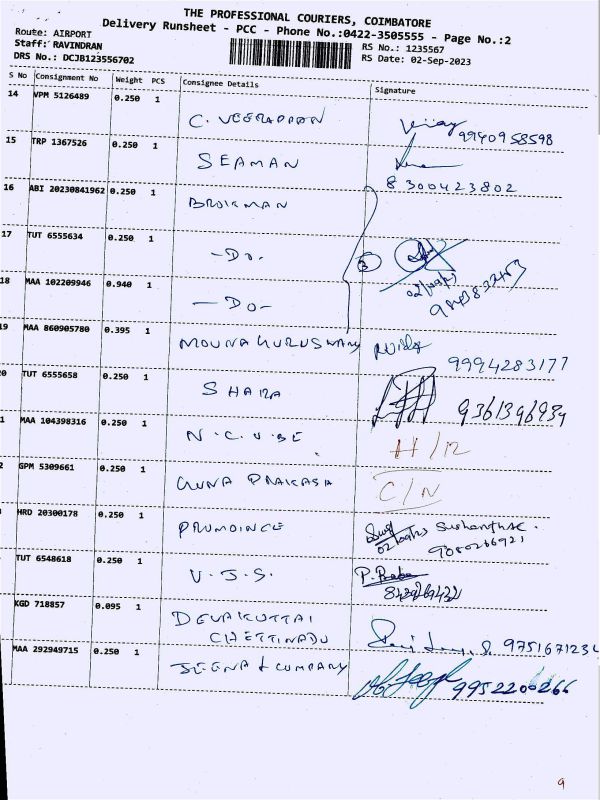 THE PROFESSIONAL COURIERS, COIMBATORE
Delivery Runsheet - PCC - Phone No.:0422-3505555 - Page No.:2
Route: AIRPORT
Staff: RAVINDRAN
DRS No.: DCJB123556702
RS No.: 1235567
RS Date: 02-Sep-2023
S No Consignment No Weight PCS Consignee Details Signature
14 VPM 5126489 0.250 1
C. VEERAPPAN Vijay 9940958598
15 TRP 1367526 0.250 1
SEAMAN
8300423802
16 ABI 20230841962 0.250 1
BROIKMAN
17 TUT 6555634 0.250 1
- DO. 3
18 MAA 102209946 0.940 1
- DO -
9 MAA 860905780 0.395 1
MOUNA GURUSWAMY
9994283177
0 TUT 6555658 0.250 1
SHARA 9361396934
1 MAA 104398316 0.250 1
N.C.U.BE H/12
2 GPM 5309661 0.250 1
GUNA PRAKASH C/N
HRD 20300178 0.250 1
PRUMOINCE Sushanth.K.
9080266921
TUT 6548618 0.250 1
V.J.S. P. Baba
KGD 718857 0.095 1
DEVAKOTTAI
CHETTINADU 9751671234
MAA 292949715 0.250 1
JEENA & COMPANY 9952200266
9